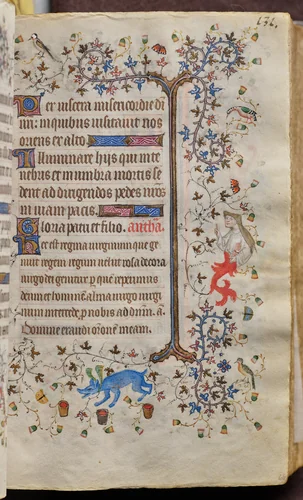 Per viscera misericordie dei
nri: in quibus visitavit nos
oriens ex alto
Illuminare hijs qui in te
nebris et in umbra mortis se
dent ad dirigendos pedes nros
in viam pacis
Gloria patri et filio. antha
Hec est regina virginum que ge
nuit regem regium velut rosa decora
virgo dei genitrix p quā reperimus
deum et hominē alma virgo virgi
num intercede p nobis ad dnm. a
Domine exaudi orōnē meam